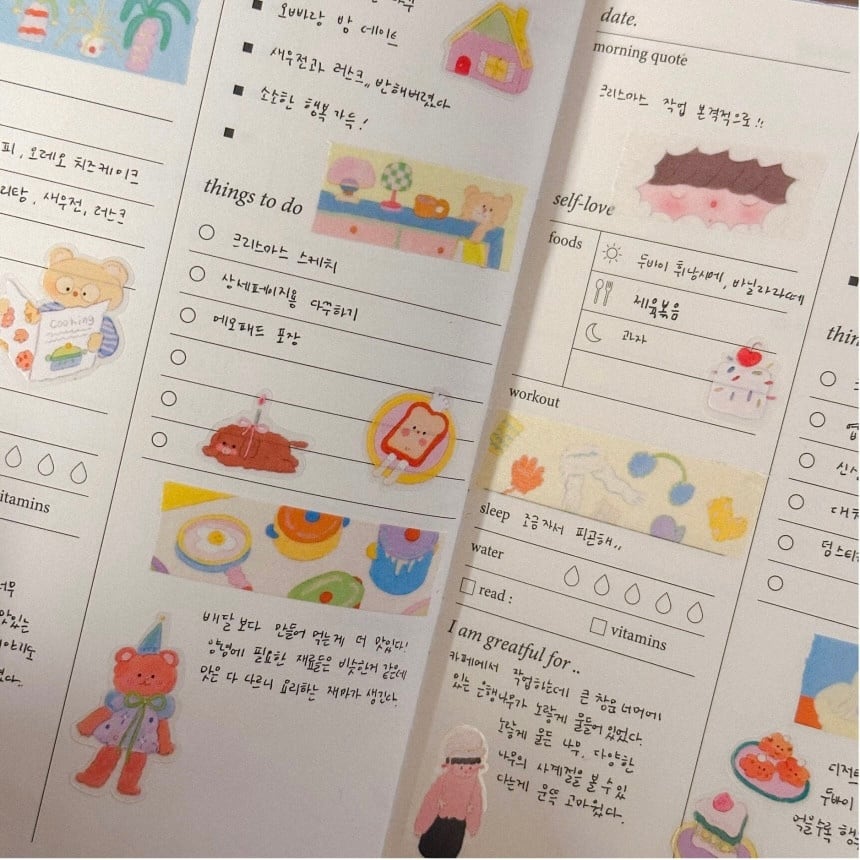 피, 오레오 치즈케이크
리탕, 새우전, 러스크
cooking
vitamins
오빠랑 밤 데이트
새우전과 러스크,, 반해버렸다
소소한 행복 가득!
things to do
크리스마스 스케치
상세페이지용 다꾸하기
메모패드 포장
배달 보다 만들어 먹는게 더 맛있다!
양념에 필요한 재료들은 비슷한거 같은데
맛은 다 다르니 요리하는 재미가 생긴다.
date.
morning quote
크리스마스 작업 본격적으로!!
self-love
foods
두바이 휘낭시에, 바닐라라떼
제육볶음
과자
workout
sleep 조금 자서 피곤해,,
water
read :
vitamins
I am greatful for..
카페에서 작업하는데 큰 창문 너머에
있는 은행나무가 노랗게 물들어 있었다.
노랗게 물든 나무, 다양한
나무의 사계절을 볼 수 있
다는게 문득 고마웠다.
thin
신상
대
덤스티
디저트
두바이
먹을수록 행